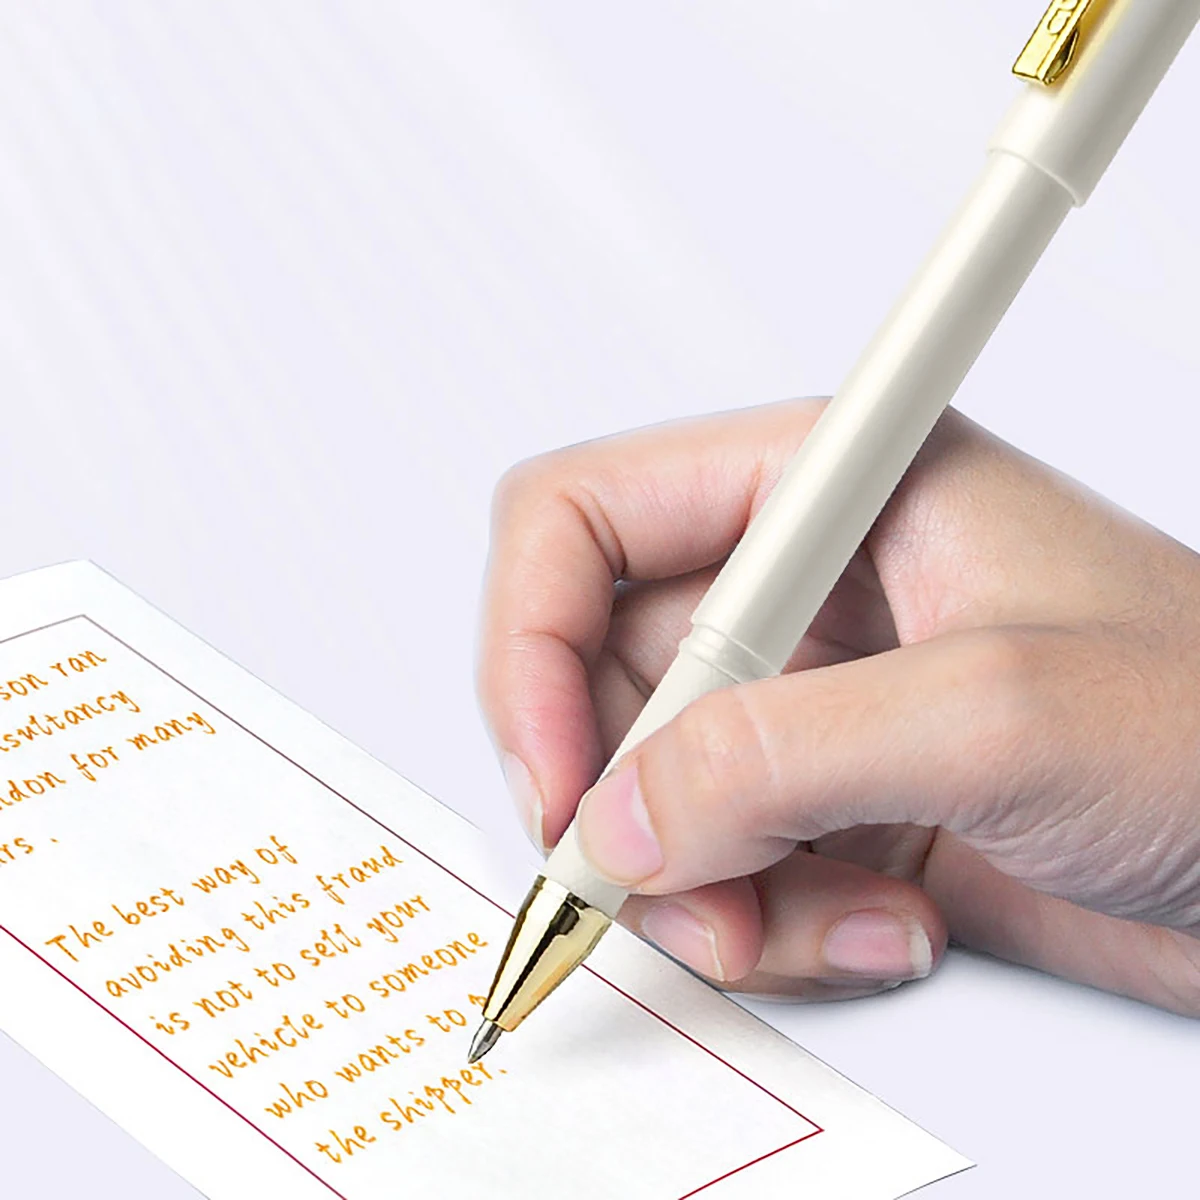 son ran
sultancy
don for many
rs .
The best way of
avoiding this fraud
is not to sell your
vehicle to someone
who wants to
the shipper.